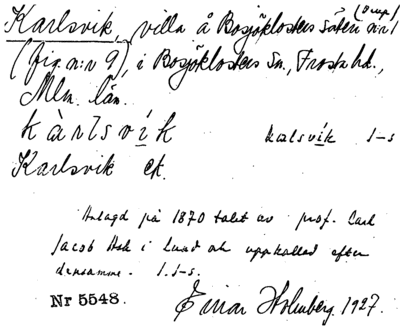 Karlsvik, villa å Bosjöklosters säteri n:r 1
(fig. n:r 9), i Bosjöklosters sn., Frosta hd.,
Mlm. län.
kàrlsvík kalsvík J-s
Karlsvik ek.
Anlagd på 1870 talet av prof. Carl
Jacob i Lund och uppkallad efter
densamme. J. J-s.
Nr 5548. Einar Holmberg. 1927.